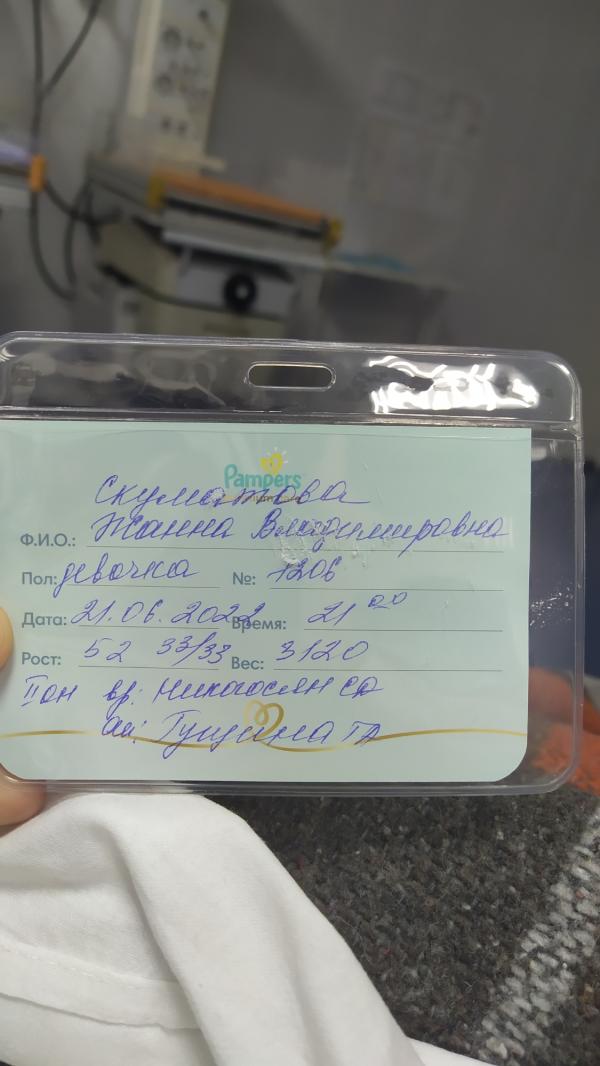 Pampers
Скуматова
Ф.И.О.: Жанна Владимировна
Пол: девочка №: 1206
Дата: 21.06.2022 Время: 21 00
Рост: 52 33/33 Вес: 3120
II он вр: Никогосян СД
Ак: Гущина ГА